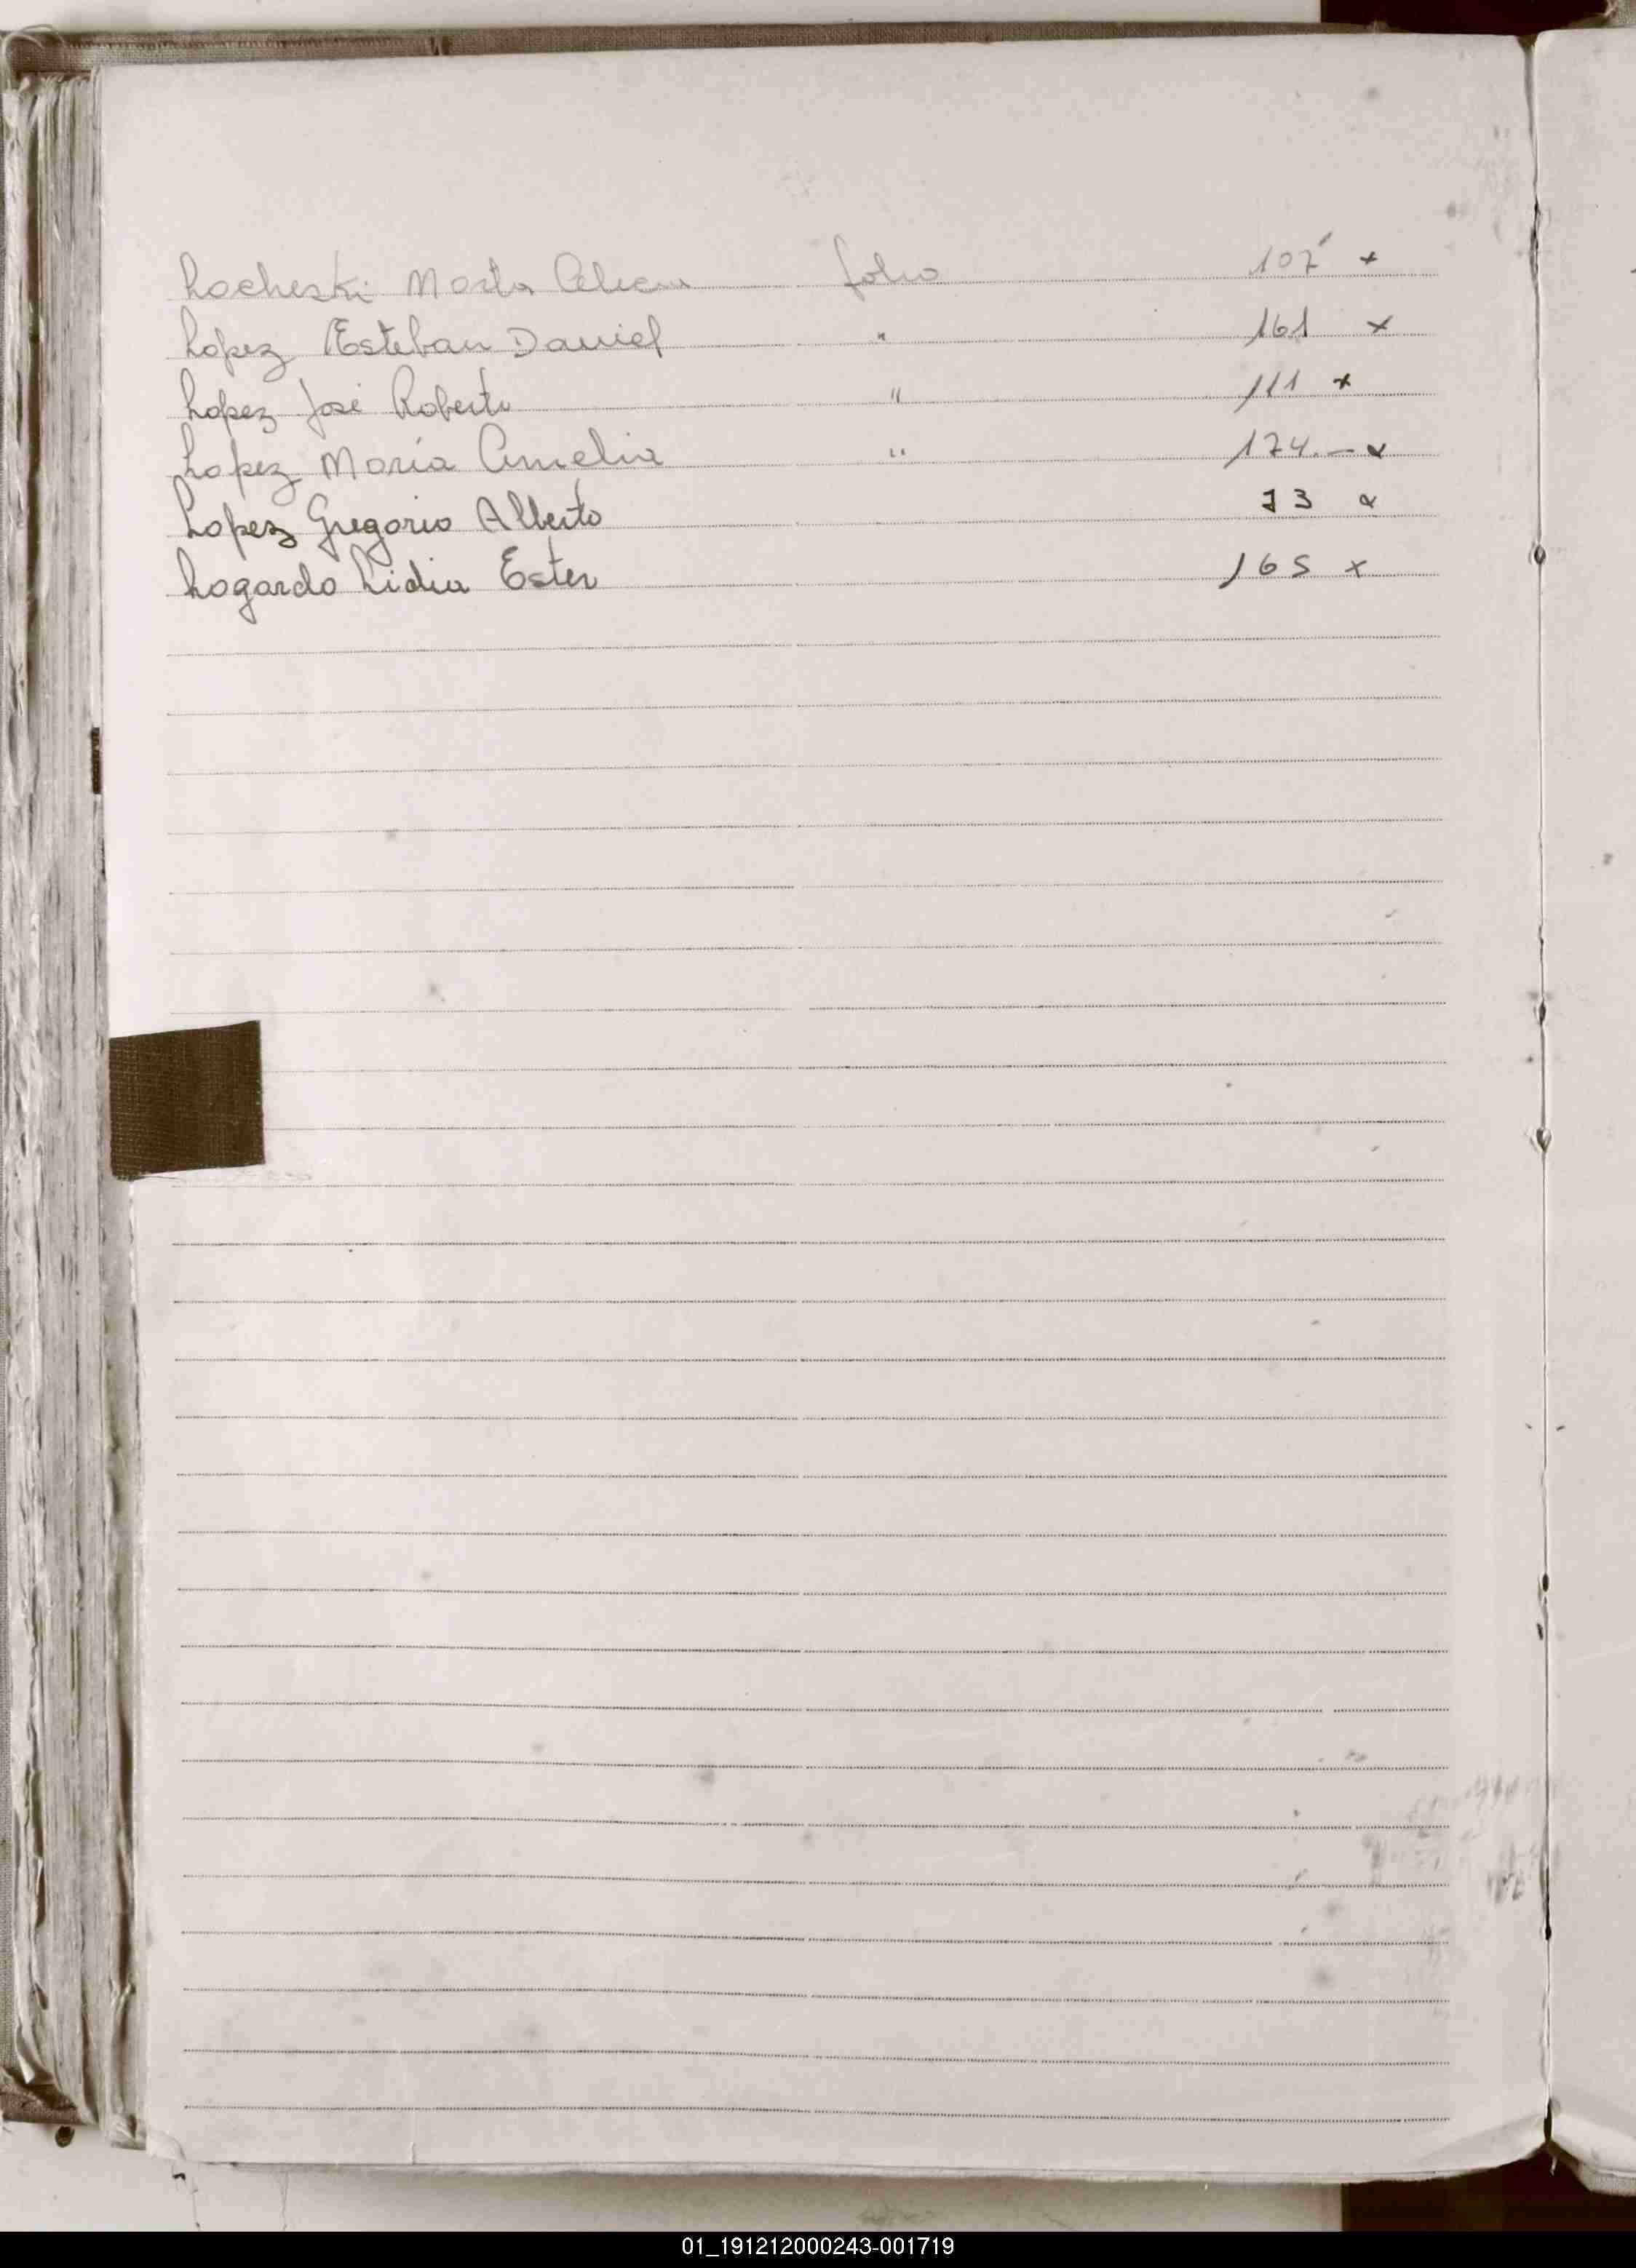 Locheski Marta Alicia folio 107 x
Lopez Esteban Daniel " 161 x
Lopez José Roberto " 111 x
Lopez María Amelia " 174.- x
Lopez Gregorio Alberto 73 x
Logardo Lidia Ester 165 x
01_191212000243-001719